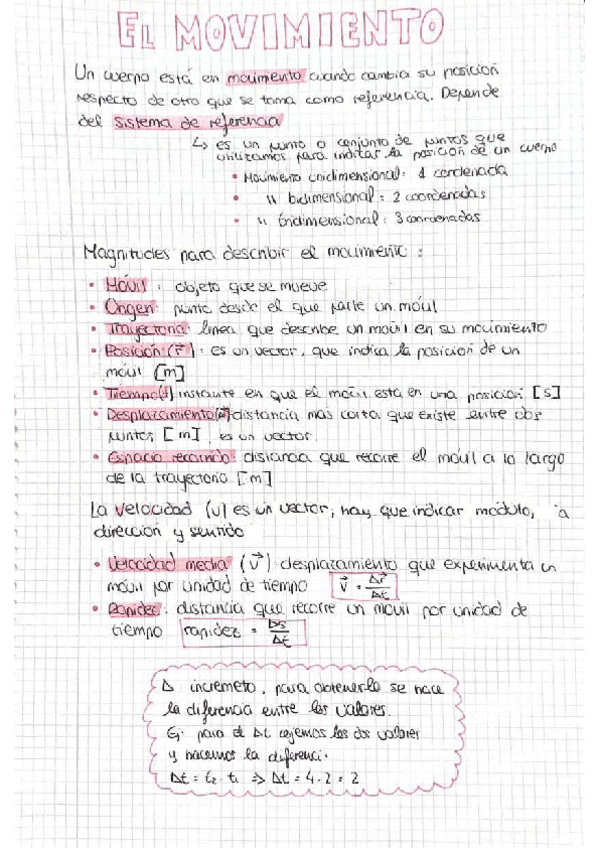 EL MOVIMIENTO
Un cuerpo está en movimiento cuando cambia su posición
respecto de otro que se toma como referencia. Depende
del sistema de referencia
↳ es un punto o conjunto de puntos que
utilizamos para indicar la posición de un cuerpo
• Movimiento unidimensional: 1 cordenada
• " bidimensional: 2 coordenadas
• " tridimensional: 3 coordenadas
Magnitudes para describir el movimiento:
• Móvil: objeto que se mueve
• Origen: punto desde el que parte un móvil
• Trayectoria: linea que describe un móvil en su movimiento
• Posición: (r⃗): es un vector, que indica la posicion de un
móvil [m]
• Tiempo(t) instante en que el móvil está en una posición [s]
• Desplazamiento distancia mas corta que existe entre dos
puntos [m], es un vector.
• Espacio recorrido: distancia que recorre el móvil a lo largo
de la trayectoria [m]
La velocidad (v) es un vector, hay que indicar módulo, a
dirección y sentido
• Velocidad media (v⃗): desplazamiento que experimenta un
móvil por unidad de tiempo v⃗ = Δr⃗/Δt
• Rapidez: distancia que recorre un móvil por unidad de
tiempo rapidez = Δs/Δt
Δ incremeto, para obtenerlo se hace
la diferencia entre los valores.
Ej: para el Δt cojemos los dos valores
y hacemos la diferenci.
Δt = t₂ - t₁ => Δt = 4-2 = 2